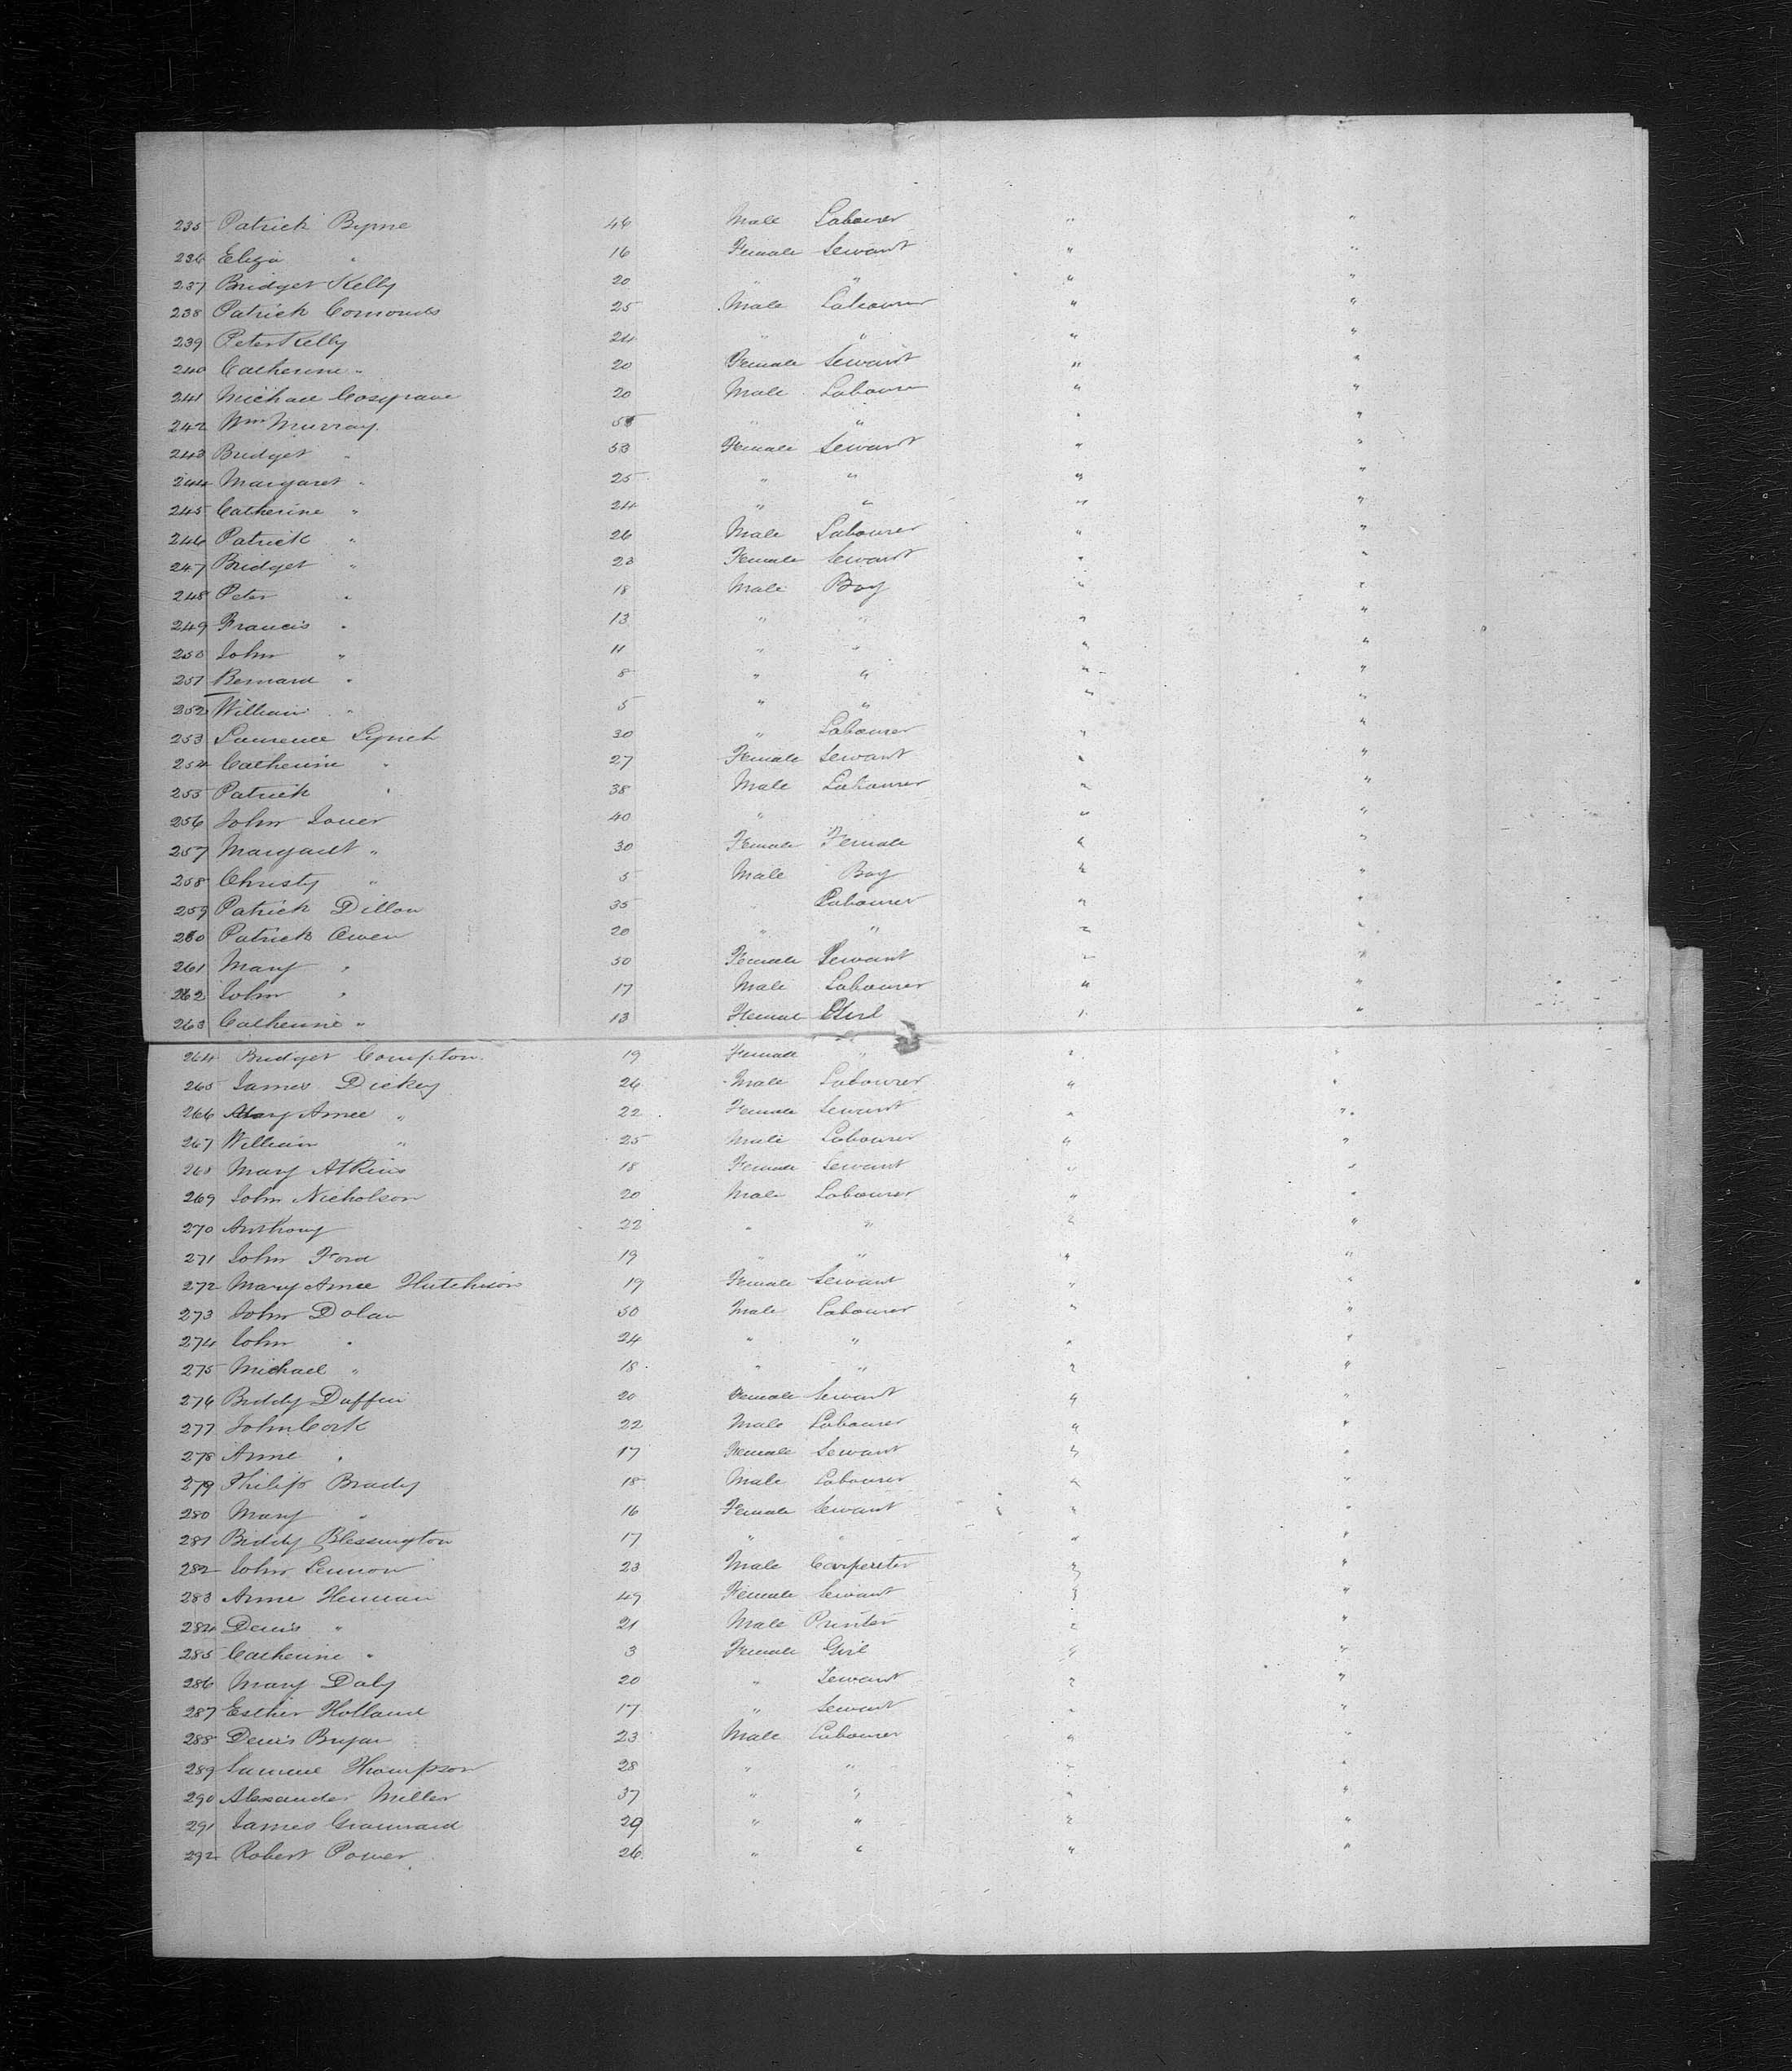 235 Patrick Byrne 46 Male Labourer " "
236 Eliza " 16 Female Servant " "
237 Bridget Kelly 20 " " " "
238 Patrick 25 Male Labourer " "
239 Peter Kelly 24 " " " "
240 Catherine " 20 Female Servant " "
241 Michael Cosgrave 20 Male Labourer " "
242 Wm Murray " " " "
243 Bridget " 53 Female Servant " "
244 Margaret " 25 " " " "
245 Catherine " 24 " " " "
246 Patrick " 26 Male Labourer " "
247 Bridget " 23 Female Servant " "
248 Peter " 18 Male Boy " "
249 Francis " 13 " " " "
250 John " 11 " " " "
251 Bernard " 8 " " " "
252 William " 5 " " " "
253 Laurence Lynch 30 " Labourer " "
254 Catherine " 27 Female Servant " "
255 Patrick " 38 Male Labourer " "
256 John 40 " " "
257 Margaret " 30 Female Female " "
258 Christy " 5 Male Boy " "
259 Patrick Dillon 35 Labourer " "
260 Patrick Owen 20 " " " "
261 Mary " 50 Female Servant " "
262 John " 17 Male Labourer " "
263 Catherine " 13 Female Girl " "
264 Bridget Compton 19 Female " " "
265 James Dickey 26 Male Labourer " "
266 Mary Anne " 22 Female Servant " "
267 William " 25 Male Labourer " "
268 Mary Atkins 18 Female Servant " "
269 John Nicholson 20 Male Labourer " "
270 Anthony 22 " " " "
271 John Ford 19 " " " "
272 Mary Anne Hutchison 19 Female Servant " "
273 John Dolan 50 Male Labourer " "
274 John " 24 " " " "
275 Michael " 18 " " " "
276 Biddy Duffin 20 Female Servant " "
277 John Cork 22 Male Labourer " "
278 Anne " 17 Female Servant " "
279 Philip Brady 18 Male Labourer " "
280 Mary " 16 Female Servant " "
281 Biddy Blessington 17 " " " "
282 John Lennon 23 Male Carpenter " "
283 Anne Heenan 49 Female Servant " "
284 Denis " 21 Male Printer " "
285 Catherine " 3 Female Girl " "
286 Mary Daly 20 " Servant " "
287 Esther Holland 17 " Servant " "
288 Denis Bryan 23 Male Labourer " "
289 Samuel Thompson 28 " " " "
290 Alexander Miller 37 " " " "
291 James 29 " " " "
292 Robert Power 26 " " " "